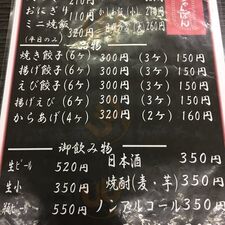 おにぎり 110円
ミニ焼飯 270円
(平日のみ) 320円
一品物
焼き餃子(6ヶ) 300円 (3ヶ) 150円
揚げ餃子(6ヶ) 300円 (3ヶ) 150円
えび餃子(6ヶ) 300円 (3ヶ) 150円
揚げえび(6ヶ) 300円 (3ヶ) 150円
からあげ(4ヶ) 320円 (2ヶ) 160円
御飲み物
生ビール 520円 日本酒 350円
生小 350円 焼酎(麦・芋) 350円
瓶ビール 550円 ノンアルコール 350円